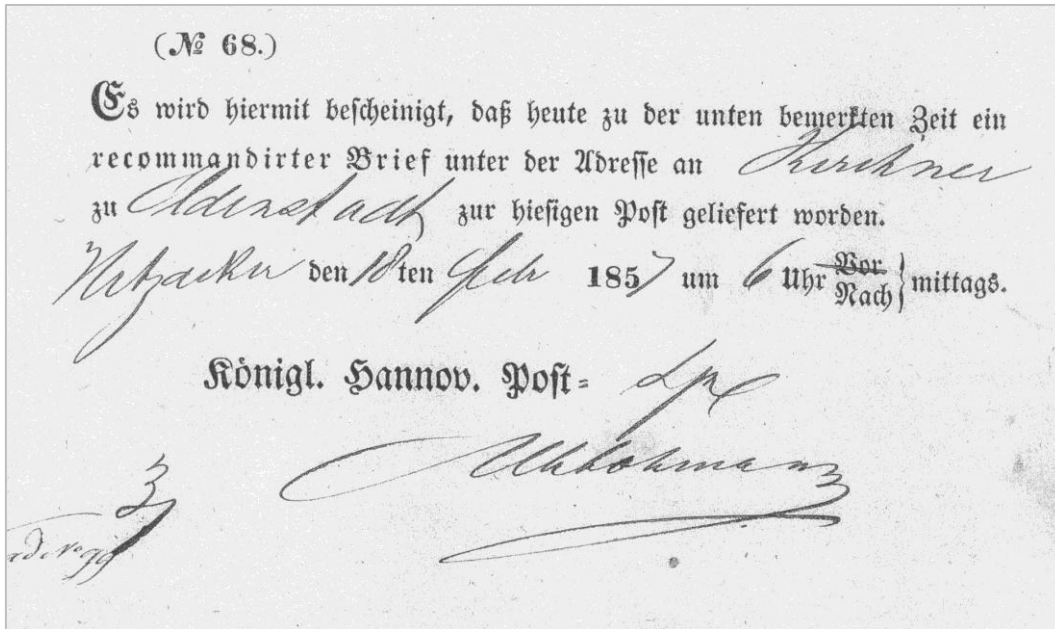 (№ 68.)
Es wird hiermit bescheinigt, daß heute zu der unten bemerkten Zeit ein
recommandirter Brief unter der Adresse an Kirchner
zu Oldenstadt zur hiesigen Post geliefert worden.
den 18ten Febr 1857 um 6 Uhr Vor
Nach } mittags.
Königl. Hannov. Post-